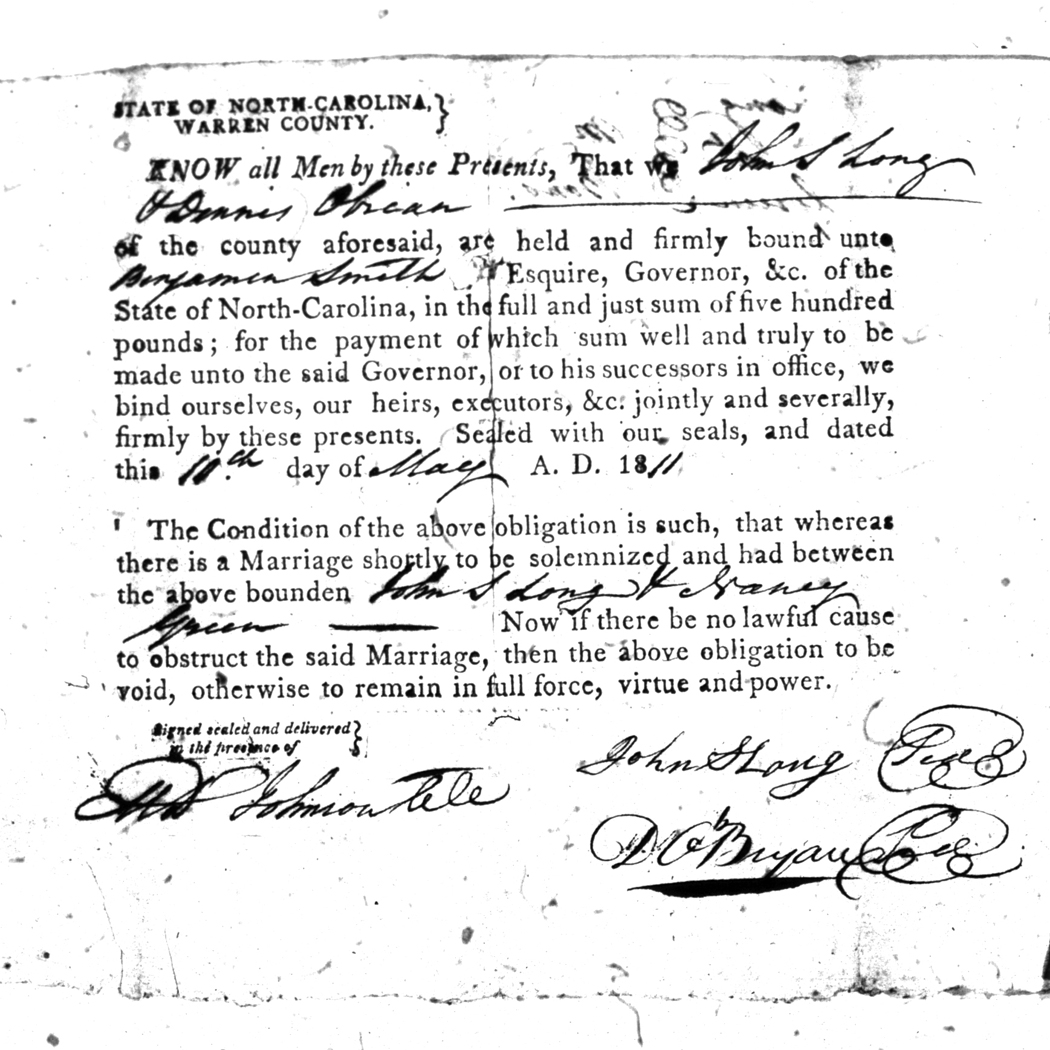 STATE OF NORTH-CAROLINA, }
WARREN COUNTY.
KNOW all Men by these Presents, That we John S Long
& Dennis Obrean
of the county aforesaid, are held and firmly bound unto
Benjamen Smith Esquire, Governor, &c. of the
State of North-Carolina, in the full and just sum of five hundred
pounds; for the payment of which sum well and truly to be
made unto the said Governor, or to his successors in office, we
bind ourselves, our heirs, executors, &c. jointly and severally,
firmly by these presents. Sealed with our seals, and dated
this day of May A. D. 1811
The Condition of the above obligation is such, that whereas
there is a Marriage shortly to be solemnized and had between
the above bounden John S Long & Nancy
Green Now if there be no lawful cause
to obstruct the said Marriage, then the above obligation to be
void, otherwise to remain in full force, virtue and power.
Signed sealed and delivered }
in the presence of
John S Long
Johnson
D Bryan